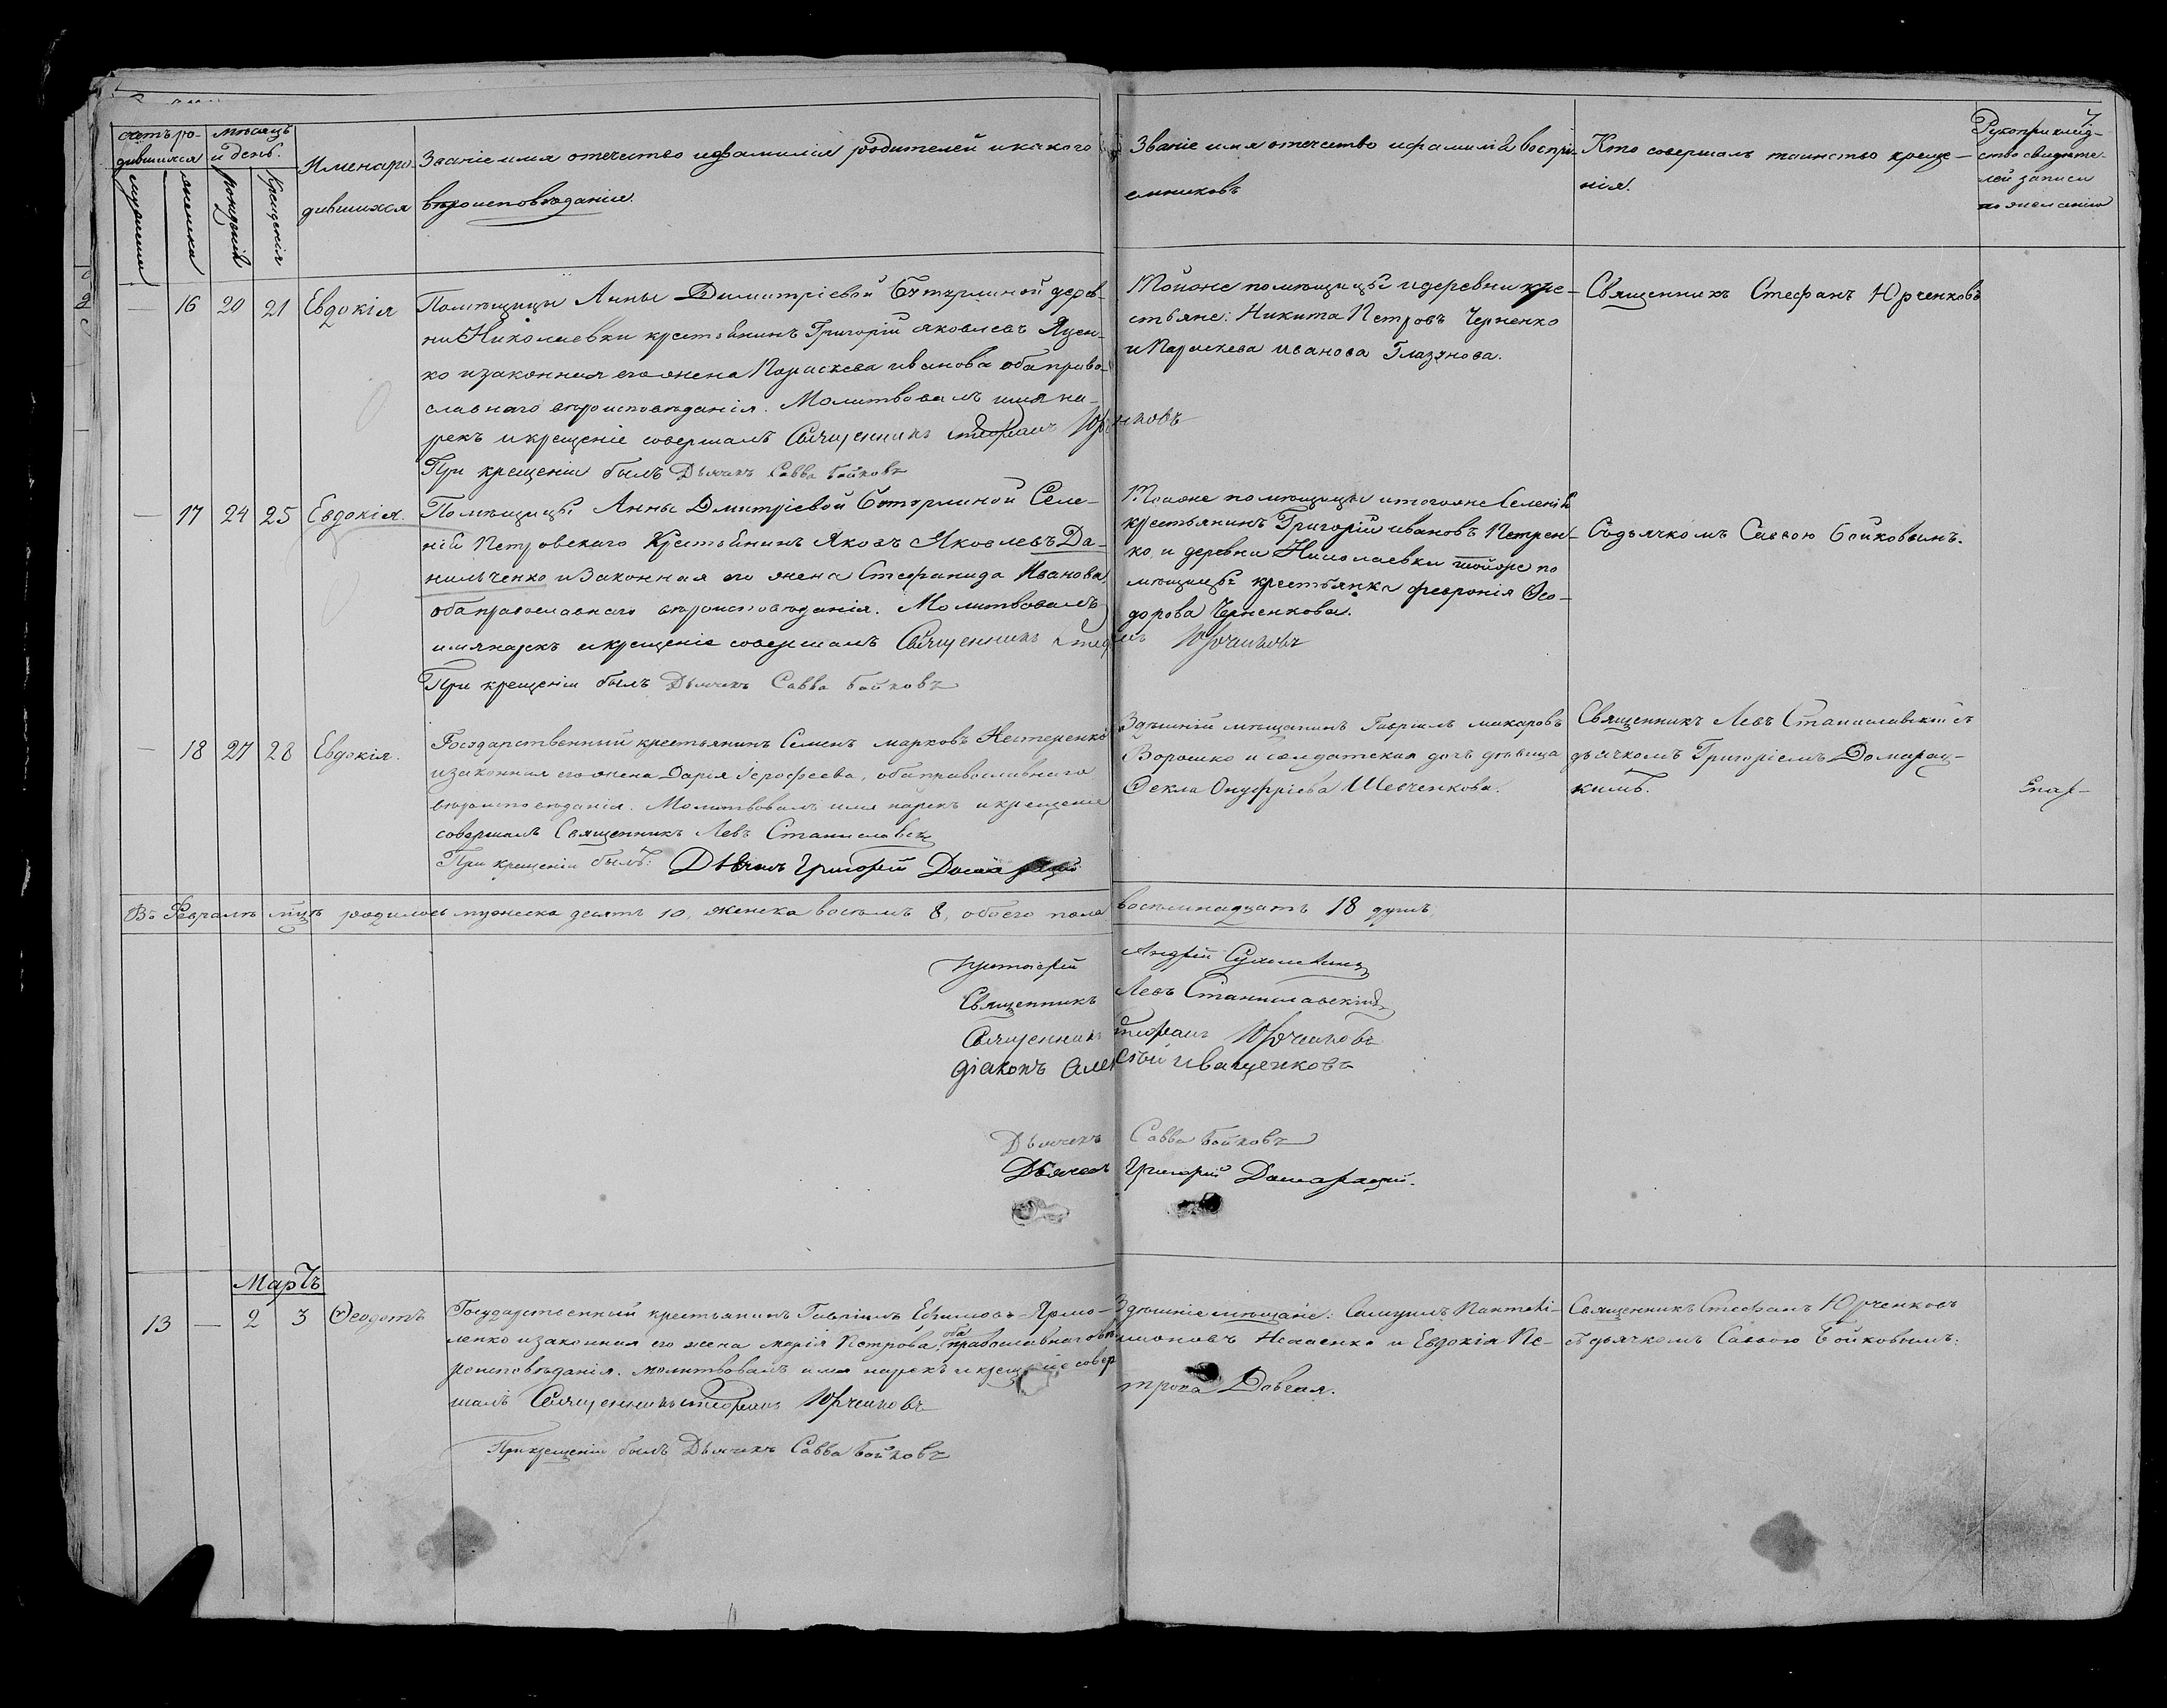 7
счетъ ро-
дившихся
мужеска
женска
мѣсяцъ
и день.
рожденія
крещенія
Имена ро-
дившихся
Званіе имя отечество и фамилія родителей и какого
вѣроисповѣданія.
Званіе имя отечество и фамилія воспрі-
емниковъ
Кто совершалъ таинство креще-
нія.
Рукоприклад-
ство свидѣте-
лей записи
по желанію
— 16 20 21 Евдокія
Помѣщицы Анны Димитріевой Бутурлиной дерев-
ни Николаевки крестьянинъ Григорій Яковлевъ Яцен-
ко и законная его жена Параскева Иванова оба право-
славнаго вѣроисповѣданія. Молитвовалъ имя на-
рекъ и крещеніе совершалъ Священникъ Стефанъ Юрченковъ
При крещеніи былъ Дьячекъ Савва Бойковъ
Тойже помѣщицы и деревни кре-
стьяне: Никита Петровъ Черненко
и Параскева Иванова Глазунова.
Священникъ Стефанъ Юрченковъ
— 17 24 25 Евдокія.
Помѣщицы Анны Дмитріевой Бутурлиной Селе-
нія Петровскаго Крестьянинъ Яковъ Яковлевъ Да-
нильченко и Законная его жена Стефанида Иванова,
оба православнаго вѣроисповѣданія. Молитвовалъ
имя нарекъ и крещеніе совершалъ Священникъ Стефанъ Юрченковъ
При крещеніи былъ Дьячекъ Савва Бойковъ
Тойже помѣщицы и тогоже Селенія
крестьянинъ Григорій Ивановъ Петрен-
ко и деревни Николаевки тойже по
мѣщицы крестьянка Февронія Ѳео-
дорова Черненкова.
Содьячкомъ Саввою Бойковымъ.
— 18 27 28 Евдокія.
Государственный крестьянинъ Семенъ Марковъ Нестеренко
и законная его жена Дарія Іерофеева, оба православнаго
вѣроисповѣданія. Молитвовалъ имя нарекъ и крещеніе
совершалъ Священникъ Левъ Станиславскій
При крещеніи былъ: Дьячекъ Григорій Домарацкій
Здѣшній мѣщанинъ Гавріилъ Макаровъ
Ворошко и солдатская дочь дѣвица
Ѳекла Онуфріева Шевченкова.
Священникъ Левъ Станиславскій съ
дьячкомъ Григоріемъ Домарац-
кимъ.
Епар-
Въ Февралѣ мцѣ родилось мужеска десять 10, женска восемь 8, обоего пола восемнадцать 18 душъ.
Протоіерей Андрей
Священникъ Левъ Станиславскій
Священникъ Стефанъ Юрченковъ
Діаконъ Алексѣй Иващенковъ
Дьячекъ Савва Бойковъ
Дьячекъ Григорій Домарацкій.
Мартъ
13 — 2 3 Ѳеодотъ
Государственный крестьянинъ Гавріилъ Ефимовъ Ярмо-
ленко и законная его жена Марія Петрова, оба православнаго вѣ
роисповѣданія. Молитвовалъ имя нарекъ и крещеніе совер
шалъ Священникъ Стефанъ Юрченковъ
При крещеніи былъ Дьячекъ Савва Бойковъ
Здѣшніе мѣщане: Самуилъ Пантелі-
моновъ Исаенко и Евдокія Пе-
трова
Священникъ Стефанъ Юрченковъ
съ дьячкомъ Саввою Бойковымъ.